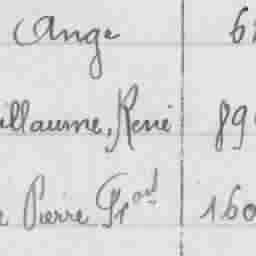 Ange 6
illaume, René 89
Pierre Gd 160